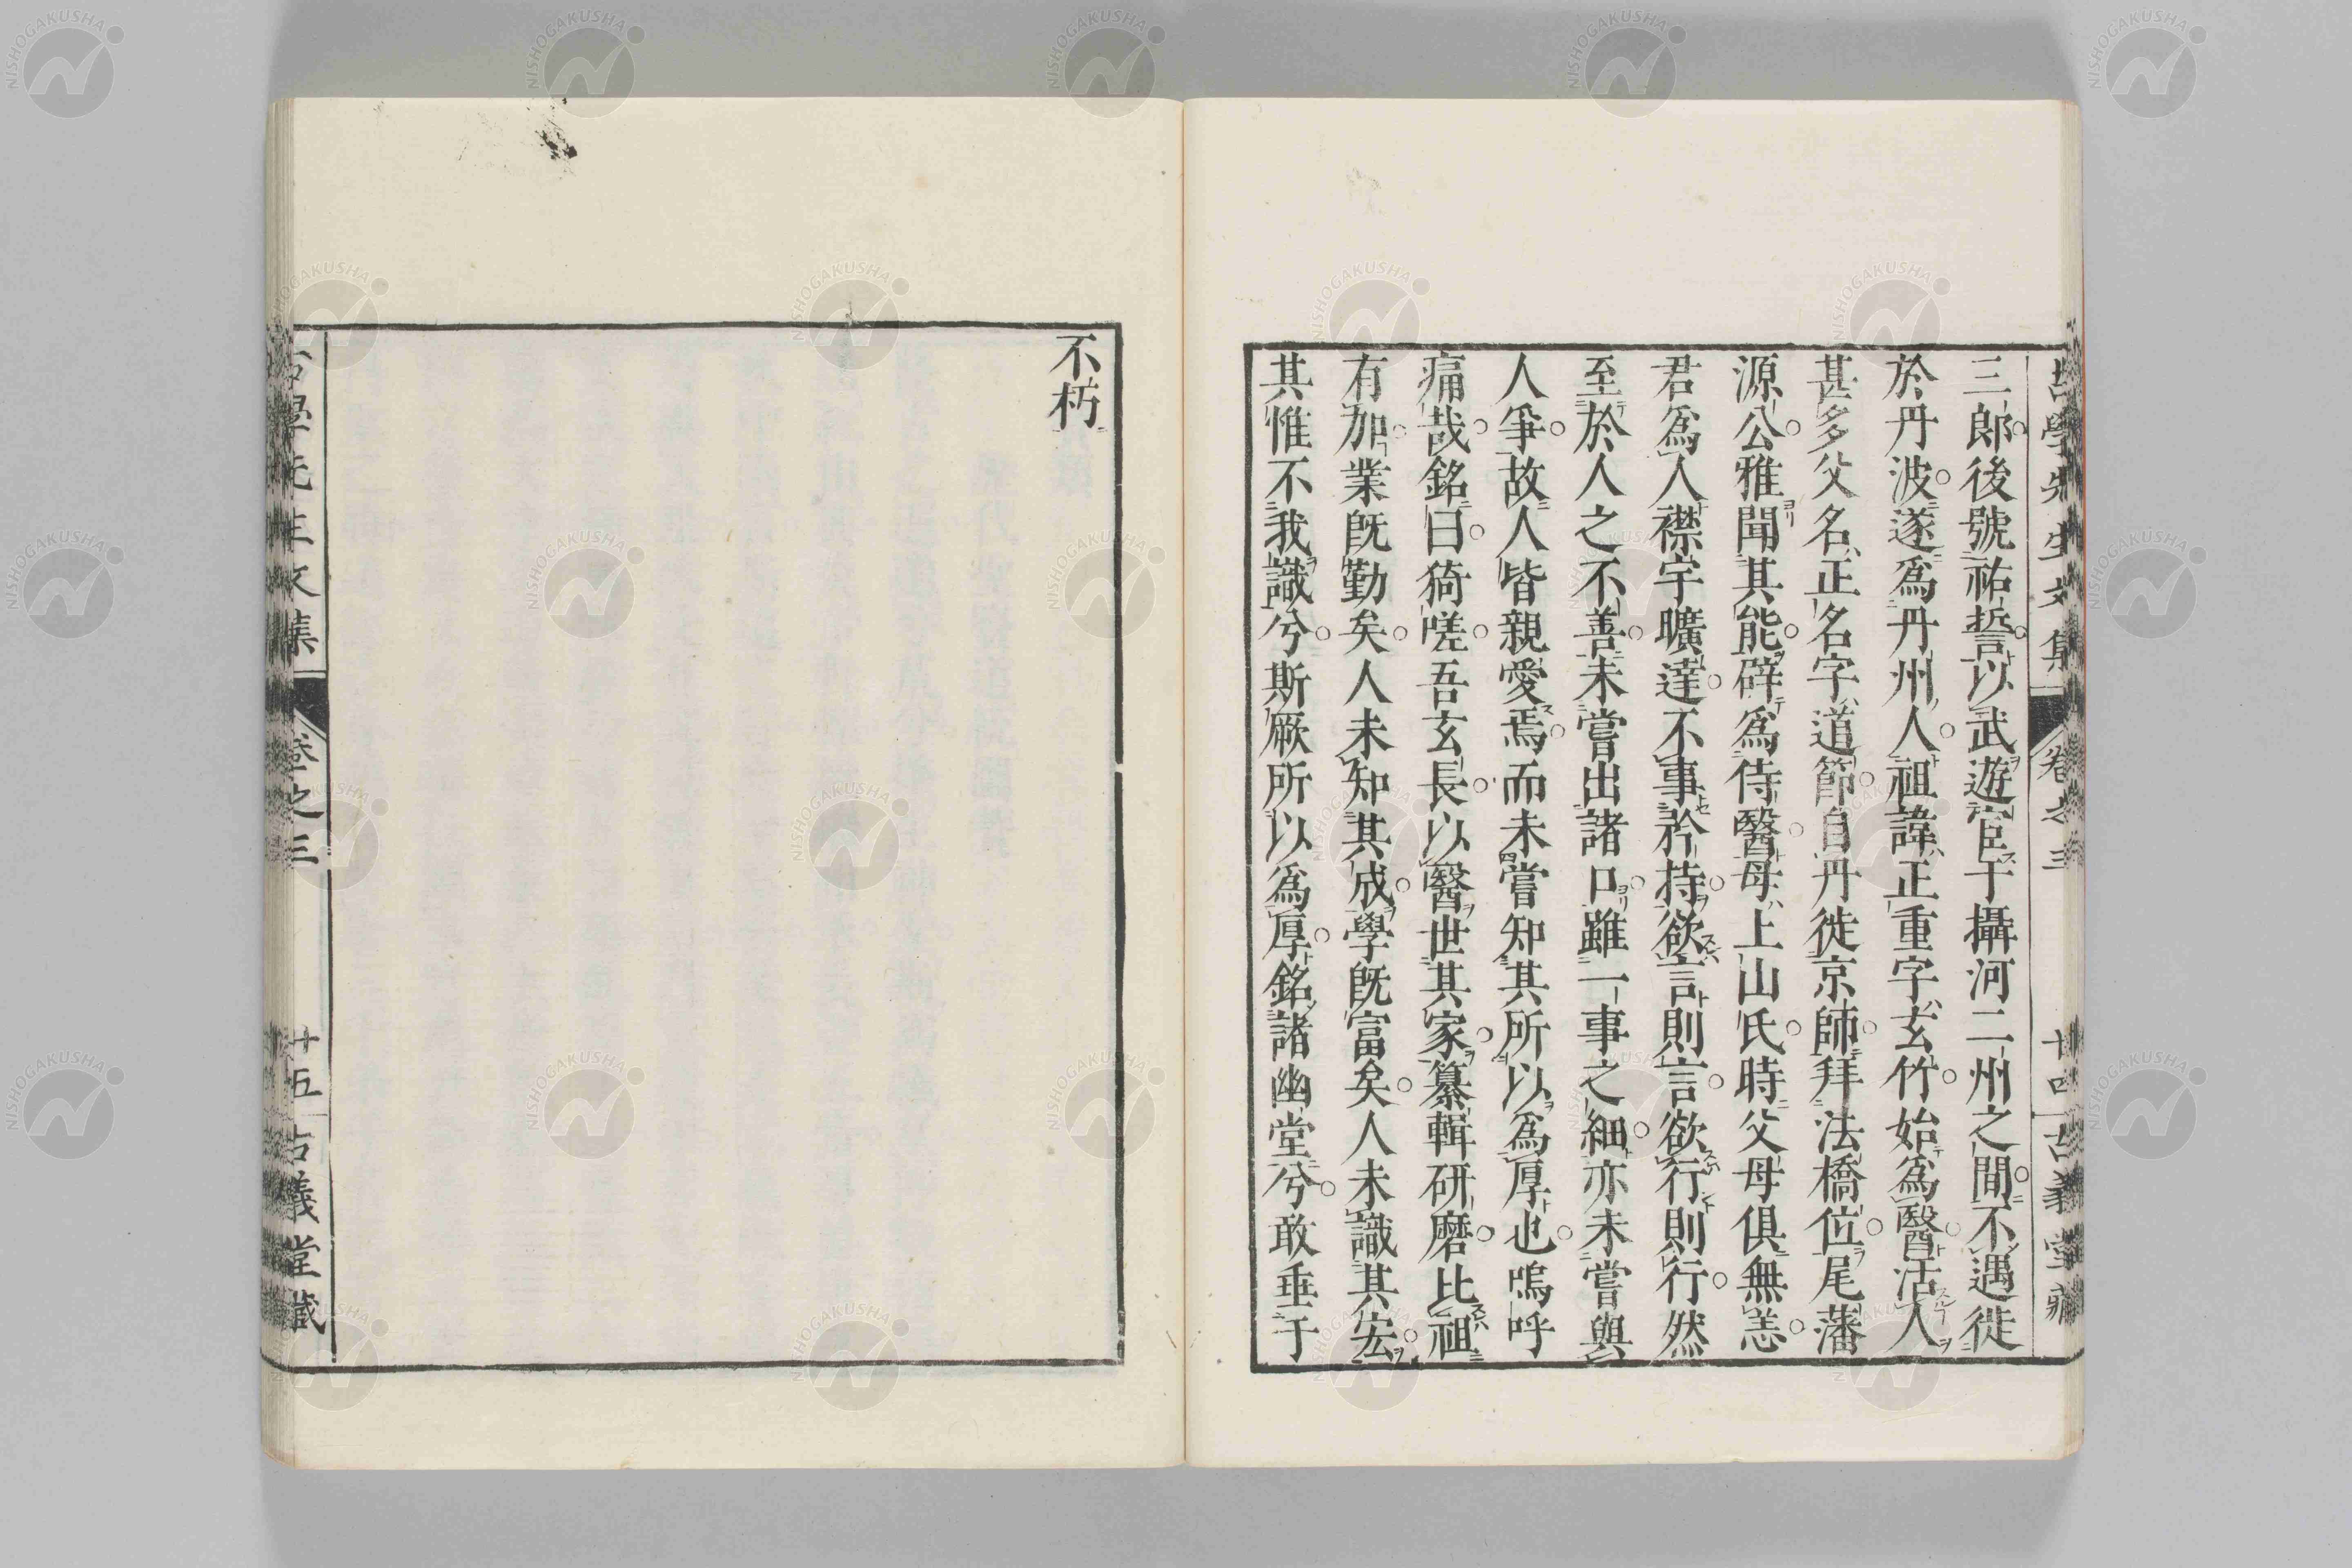 古學先生文集 卷之三 廿四 古義堂藏
三郎後號祐誓以武遊宦于攝河二州之間不遇徙
於丹波遂爲丹州人祖諱正重字玄竹始爲醫活人
甚多父名正名字道節自丹徙京師拜法橋位尾藩
源公雅聞其能辟爲侍醫母上山氏時父母俱無恙
君爲人襟宇曠達不事矜持欲言則言欲行則行然
至於人之不善未嘗出諸口雖一事之細亦未嘗與
人爭故人皆親愛焉而未嘗知其所以爲厚也嗚呼
痛哉銘曰猗嗟吾玄長以醫世其家纂輯研磨比祖
有加業既勤矣人未知其成學既富矣人未識其宏
其惟不我識兮斯厥所以爲厚銘諸幽堂兮敢垂于
不朽
古學先生文集 卷之三 廿五 古義堂藏
NISHOGAKUSHA